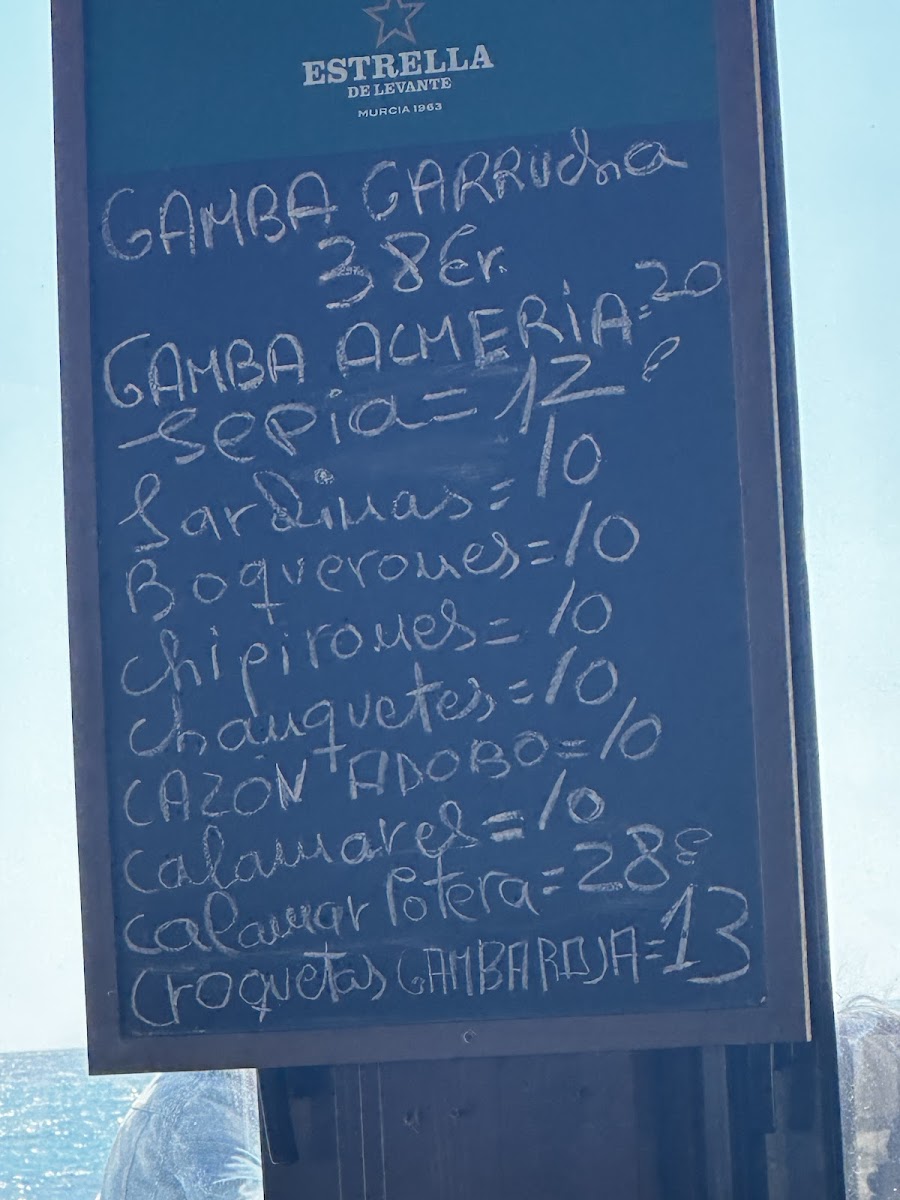 ESTRELLA
DE LEVANTE
MURCIA 1963
GAMBA GARRUcha
38 Er.
GAMBA ALMERIA=20 €
-sepia=12
Sardinas=10
Boquerones=10
chipirones=10
chanquetes=10
CAZON ADOBO=10
calamares=10
calamar Potera=28€
croquetas GAMBA ROJA=13